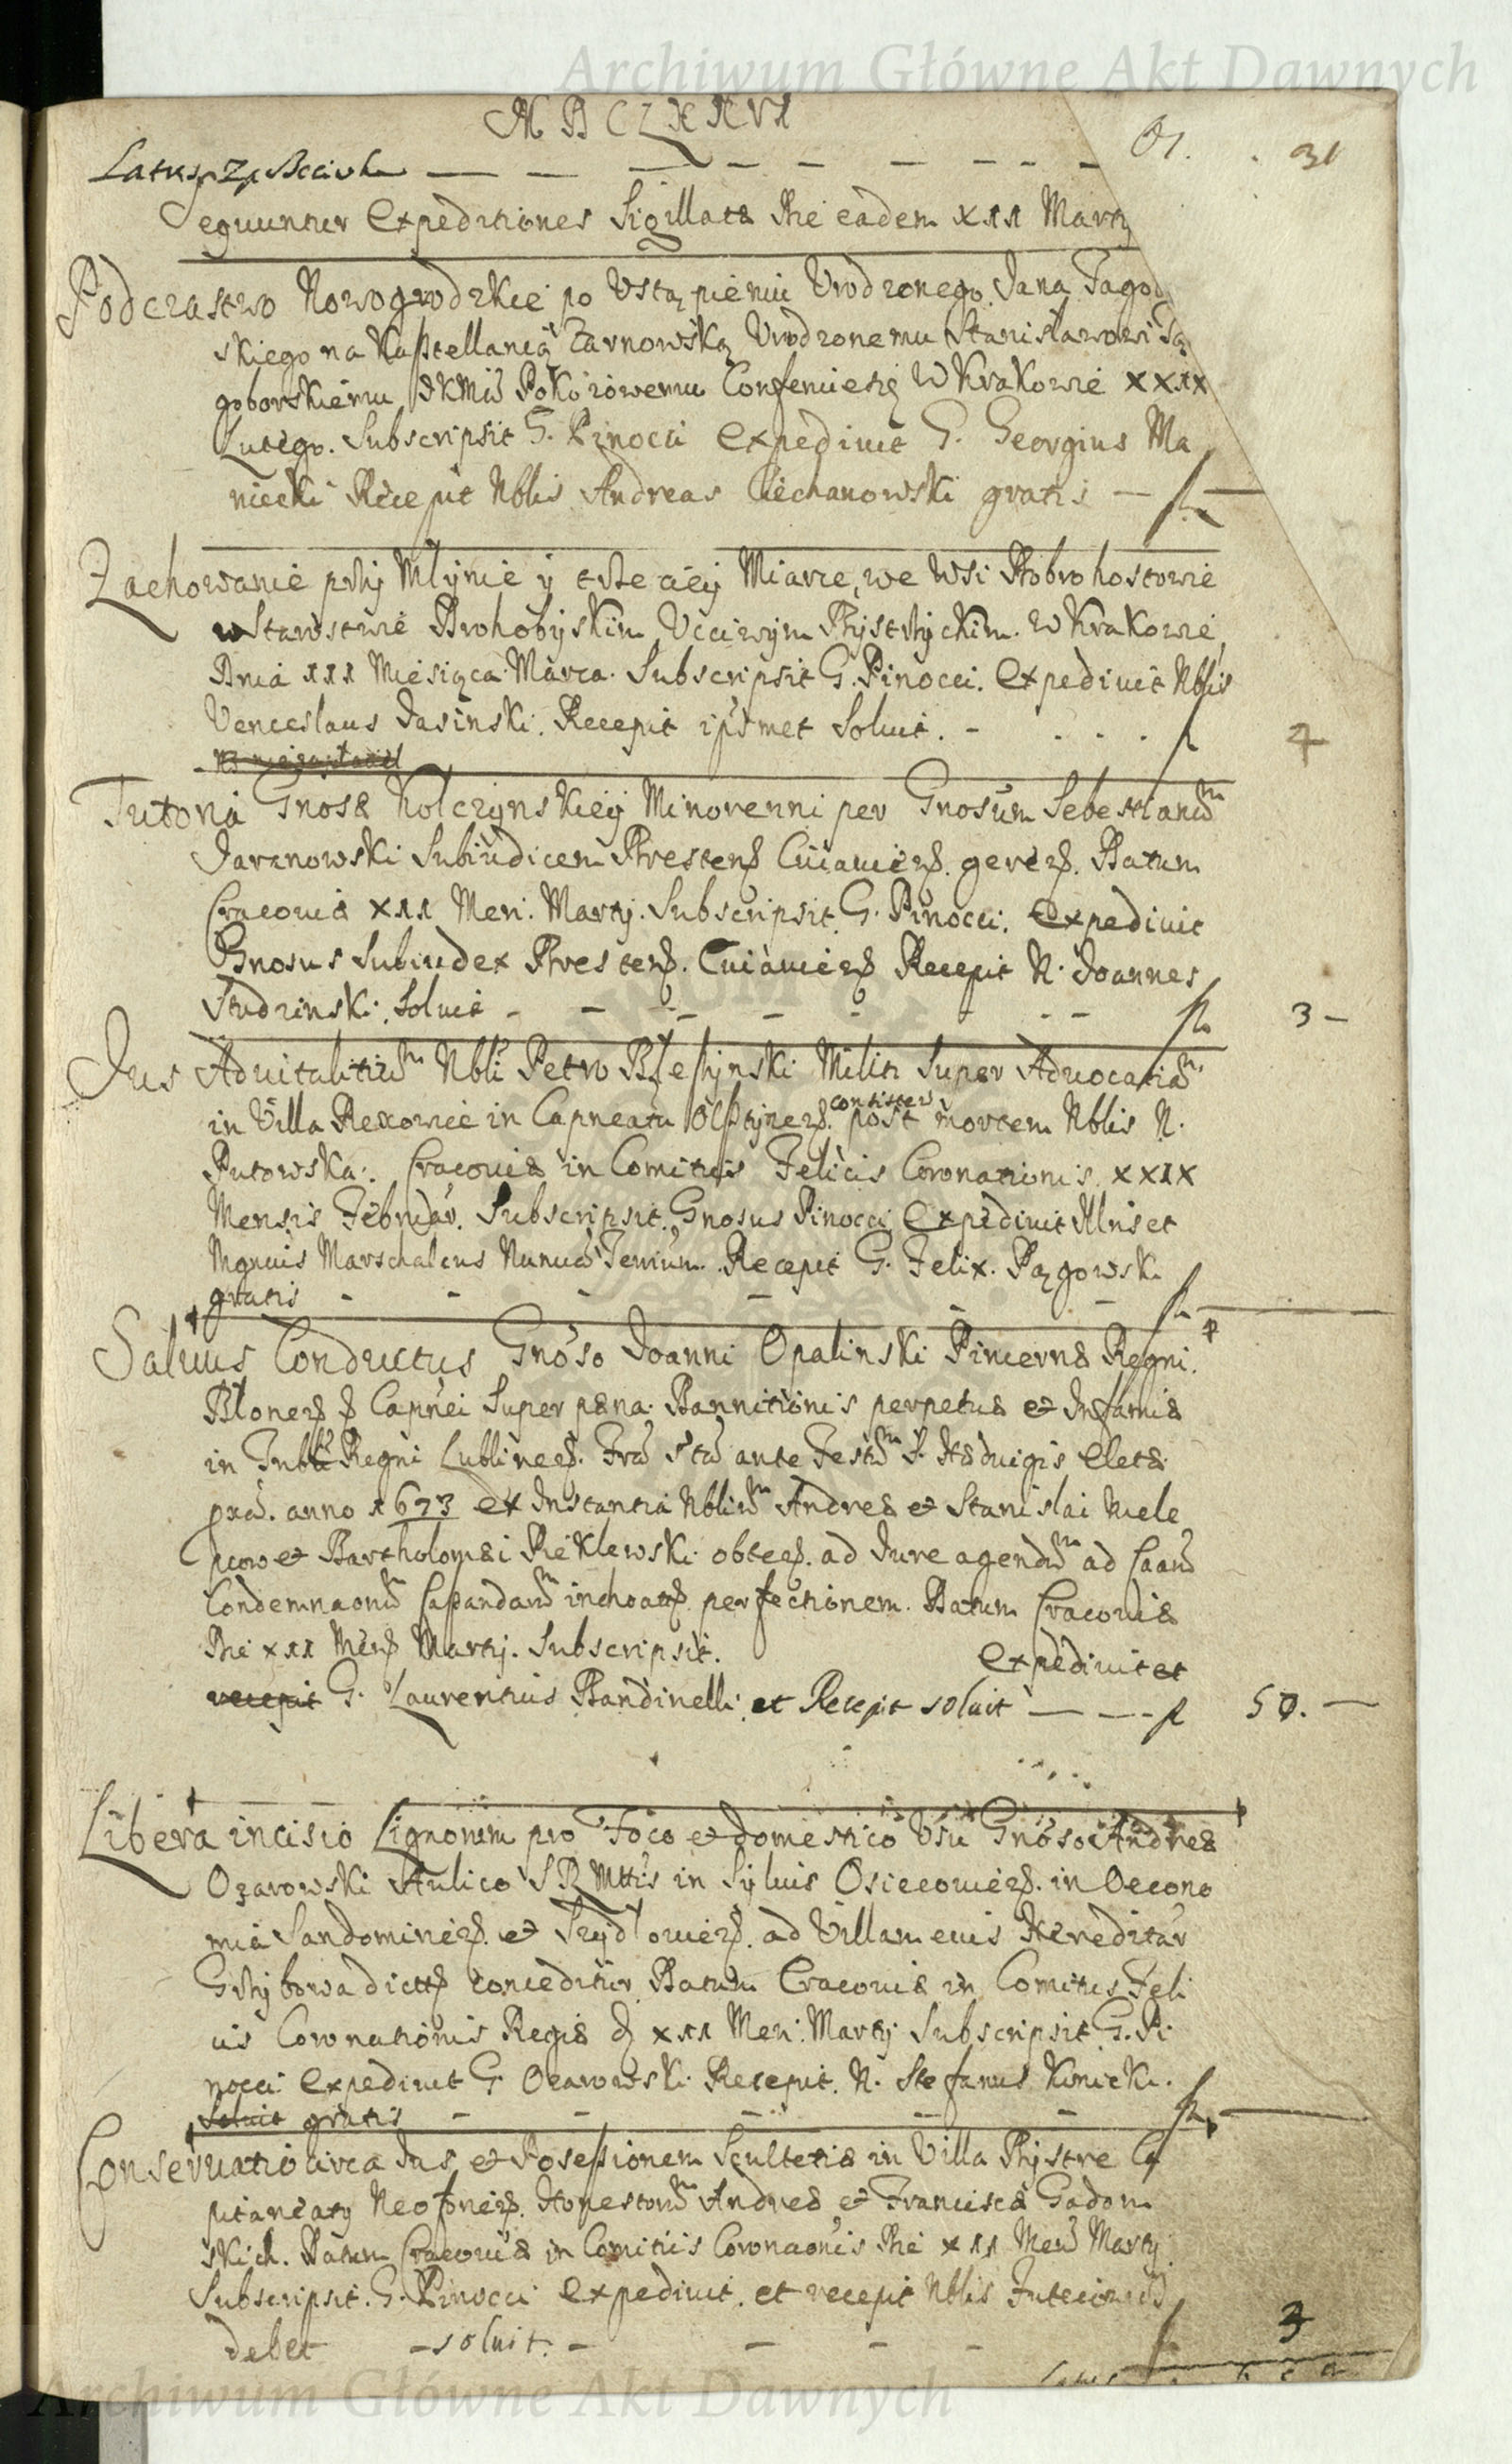 Archiwum Główne Akt Dawnych
MDCLXXVI
Latus
91. 31
Sequuntur Expeditiones Sigillatæ Die eadem XII Martij
Podczastwo Nowogrodzkie po Ustąpieniu Urodzonego Jana Jagod
skiego na Kasztellanią Żarnowską Urodzonemu Stanisławowi Za
goborskiemu JKMci Pokoiowemu Conferuie się w Krakowie XXIX
Lutego. Subscripsit G. Pinocci Expediuit G. Georgius Ma
niecki Recepit Nblis Andreas Ciechanowski gratis — fl —
Zachowanie przy Młynie y trzeciey Miarce, we Wsi Dobrohostowie
w Starostwie Drohobyskim Uczciwym Bystrzyckim. w Krakowie,
Dnia III Miesiąca Marca. Subscripsit G. Pinocci. Expediuit Nblis
Venceslaus Jasinski. Recepit ipsemet Soluit. - . . . . fl 7
Tutoria Gnosæ Kolczynskiey Minorenni per Gnosum Sebestianum
Jaranowski Subiudicem Brestens Cuiauiens. gerens. Datum
Cracouiæ XII Men: Martij. Subscripsit G. Pinocci. Expediuit
Gnosus Subiudex Brestens. Cuiauiens Recepit N. Joannes
Studzinski. Soluit - - - - - - - - fl 3 -
Jus Aduitalitium Nbli Petro Militi Super Aduocatiam
in Villa Rexowice in Capneatu Olsztynens. consisten post mortem Nblis N.
Putowska. Cracouiæ in Comitijs Felicis Coronationis XXIX
Mensis Februar. Subscripsit. Gnosus Pinocci Expediuit Illris et
Mgnuis Marschalcus Nunciorum Terrium. Recepit G. Felix. Pągowski
gratis - - - - - - fl —
Saluus Conductus Gnoso Joanni Opalinski Pincernæ Regni.
Blonens Capnei Super pæna Bannitionis perpetuæ et Infamiæ
in Regni Lublinens. ante Festum S. Hæduigis
anno 1673 ex Instantia Nblium Andreæ et Stanislai Wiele
et Bartholomæi Rieklewski obtens. ad Jure agendum ad
perfectionem. Datum Cracouiæ
Die XII Mens Martij. Subscripsit. Expediuit et
recepit G. Laurentius Bandinelli et Recepit soluit — — — fl 50. —
Libera incisio Lignorum pro Foco et domestico Usu Gnoso Andreæ
Ozarowski Aulico SRMttis in Syluis Osiecouiens. in Oecono
mia Sandomiriens. et Szydlouiens. ad Villam eius Hereditar
Grzybowa dictts conceditur Datum Cracouiæ in Comitijs Feli
cis Coronationis Regiæ d XII Men: Martij Subscripsit G. Pi
nocci Expediuit G. Ozarowski Recepit. N. Stefanus Kinicki.
Soluit gratis - - - - - fl —
Conseruatio circa Jus et Possessionem Scultetiæ in Villa Bystre Ca
pitaneatq Neoforiens. Honestorum Andreæ et Franciscæ Gadom
skich. Datum Cracouiæ in Comitijs Coronaonis Die XII Mens Martij
Subscripsit. G. Pinocci Expediuit. et recepit Nblis
debet - soluit. - - - - fl 3
Latus
Archiwum Główne Akt Dawnych